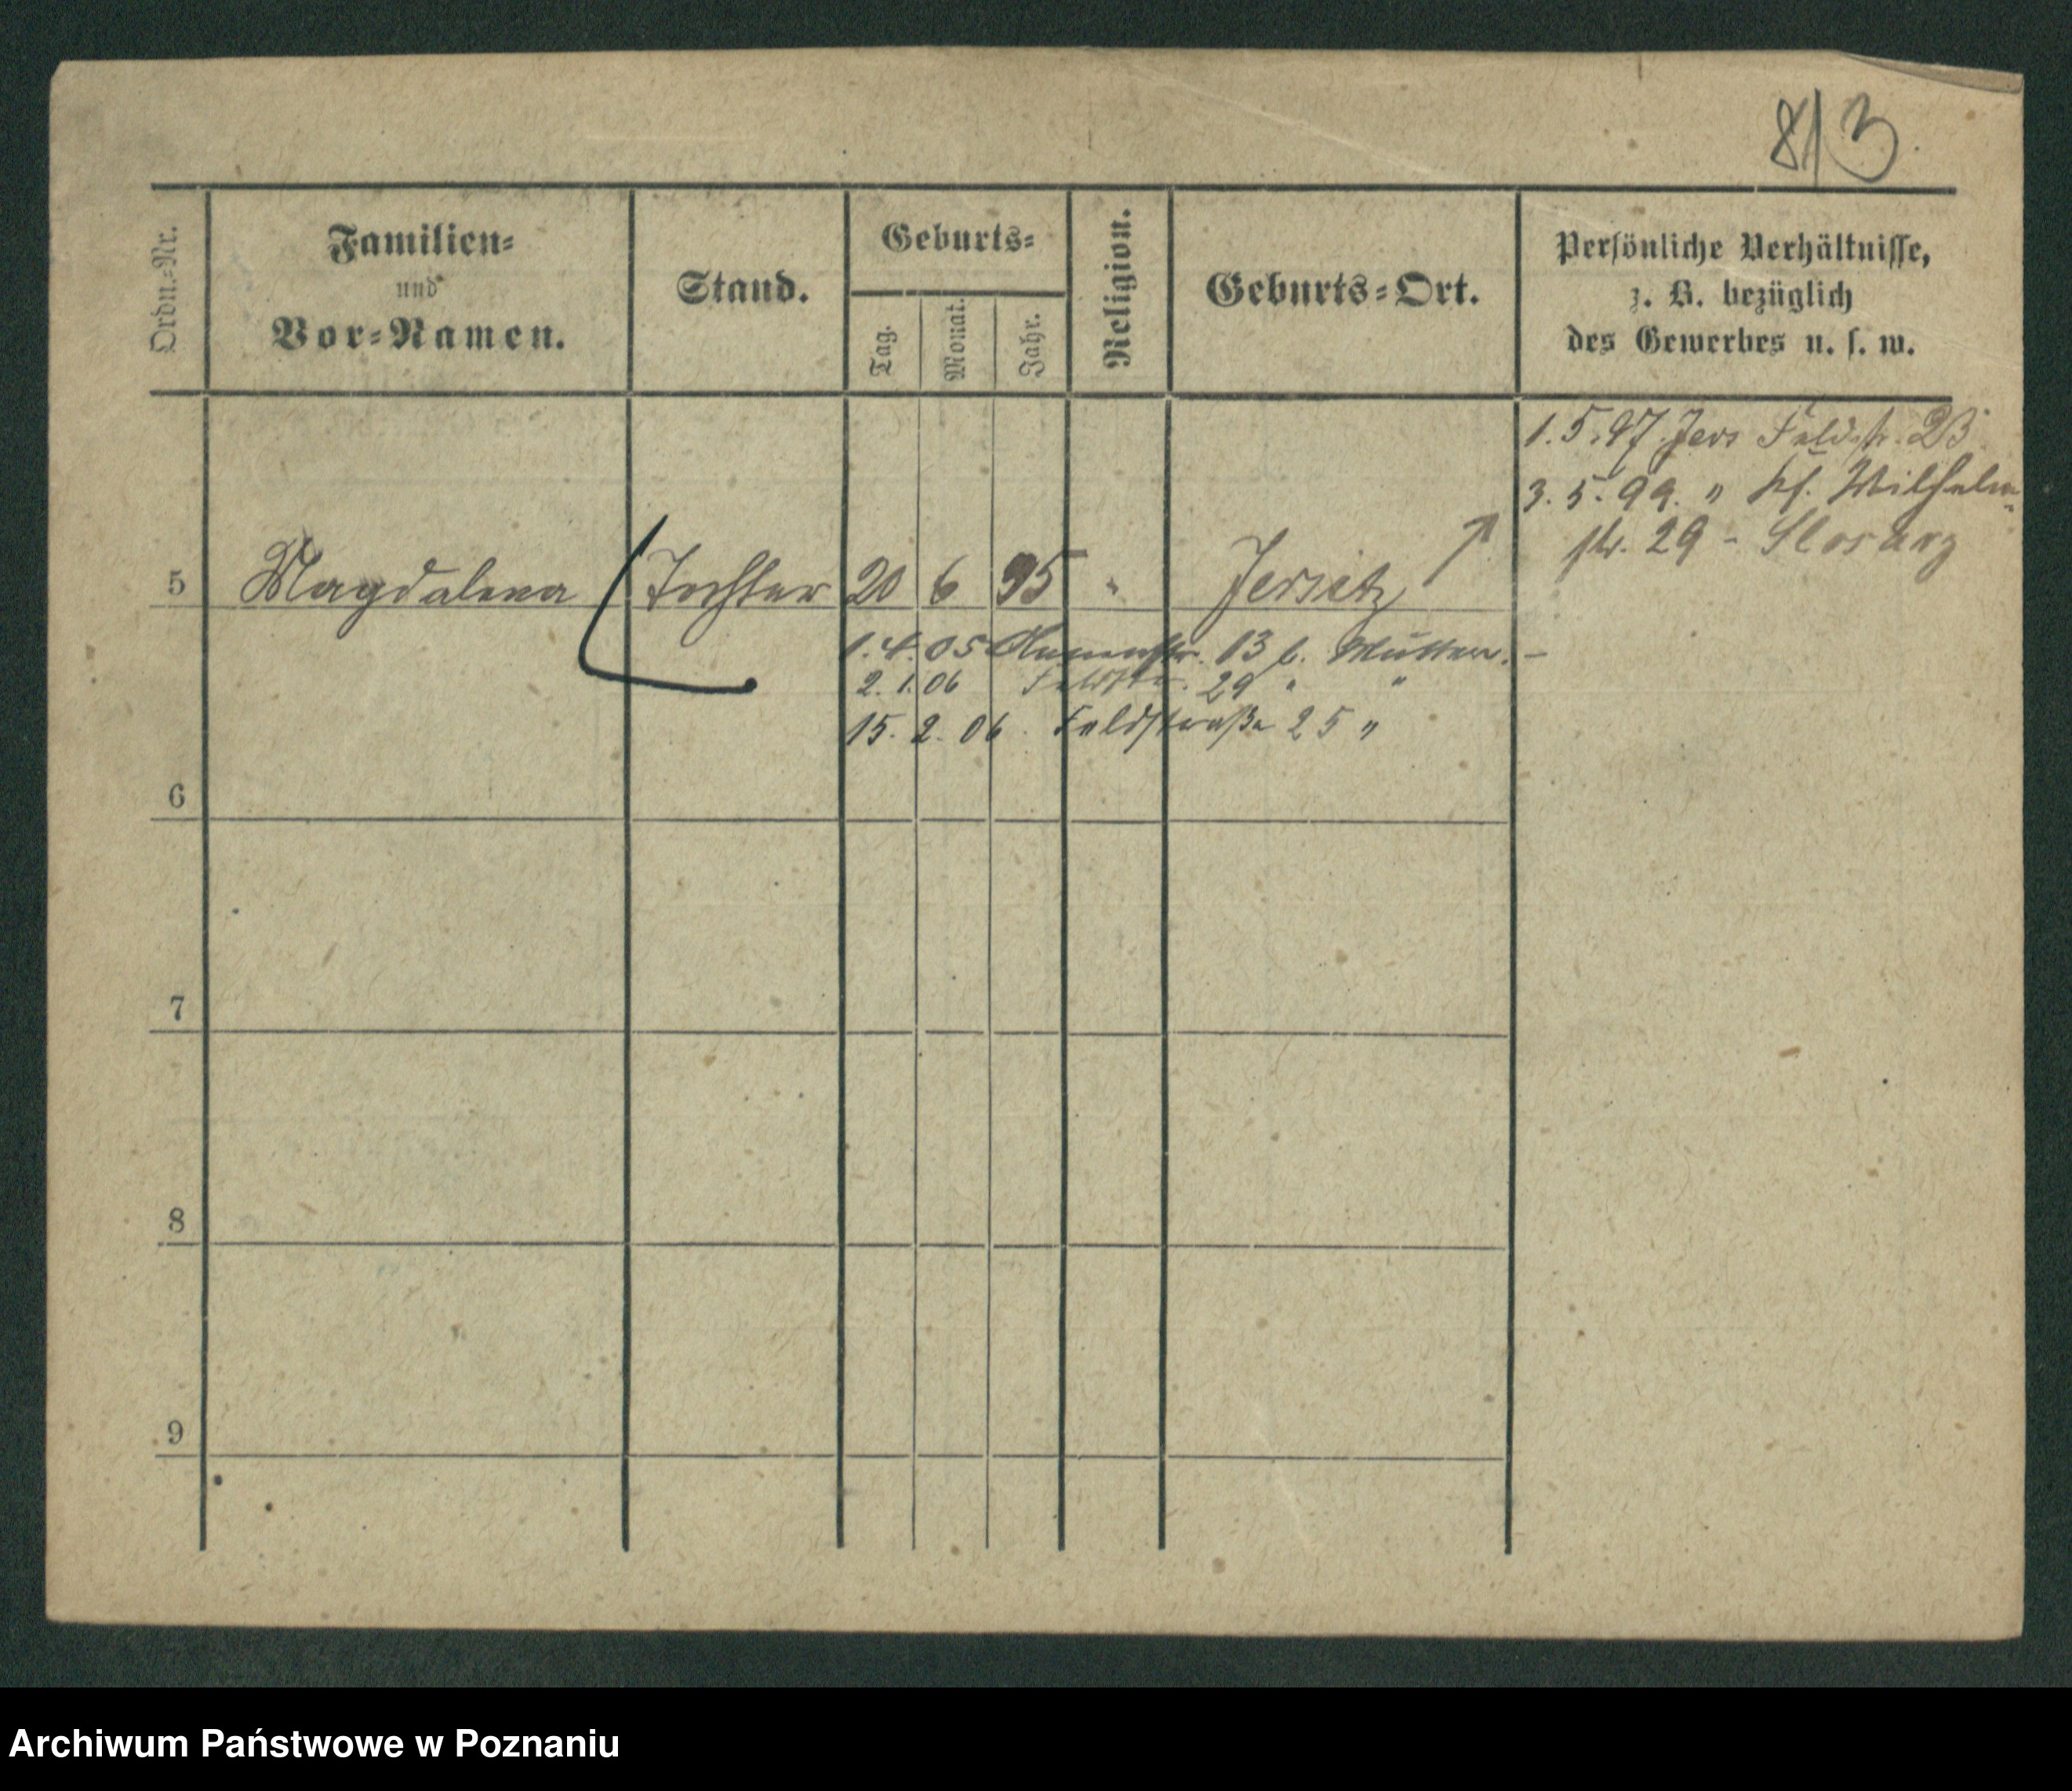 8/3
Ordn.-Nr.
Familien-
und
Vor-Namen.
Stand.
Geburts-
Tag.
Monat.
Jahr.
Religion.
Geburts-Ort.
Persönliche Verhältnisse,
z. B. bezüglich
des Gewerbes u. s. w.
1. 5. 97. Jers Feldstr. 23
3. 5. 99. " Wilhelm-
str. 29 -
5 Magdalena Tochter 20 6 95 " Jersitz
1. 4. 05 13 b. Mutter. -
2. 1. 06 Feldstr. 29 " "
15. 2. 06. Feldstraße 25 "
6
7
8
9
Archiwum Państwowe w Poznaniu